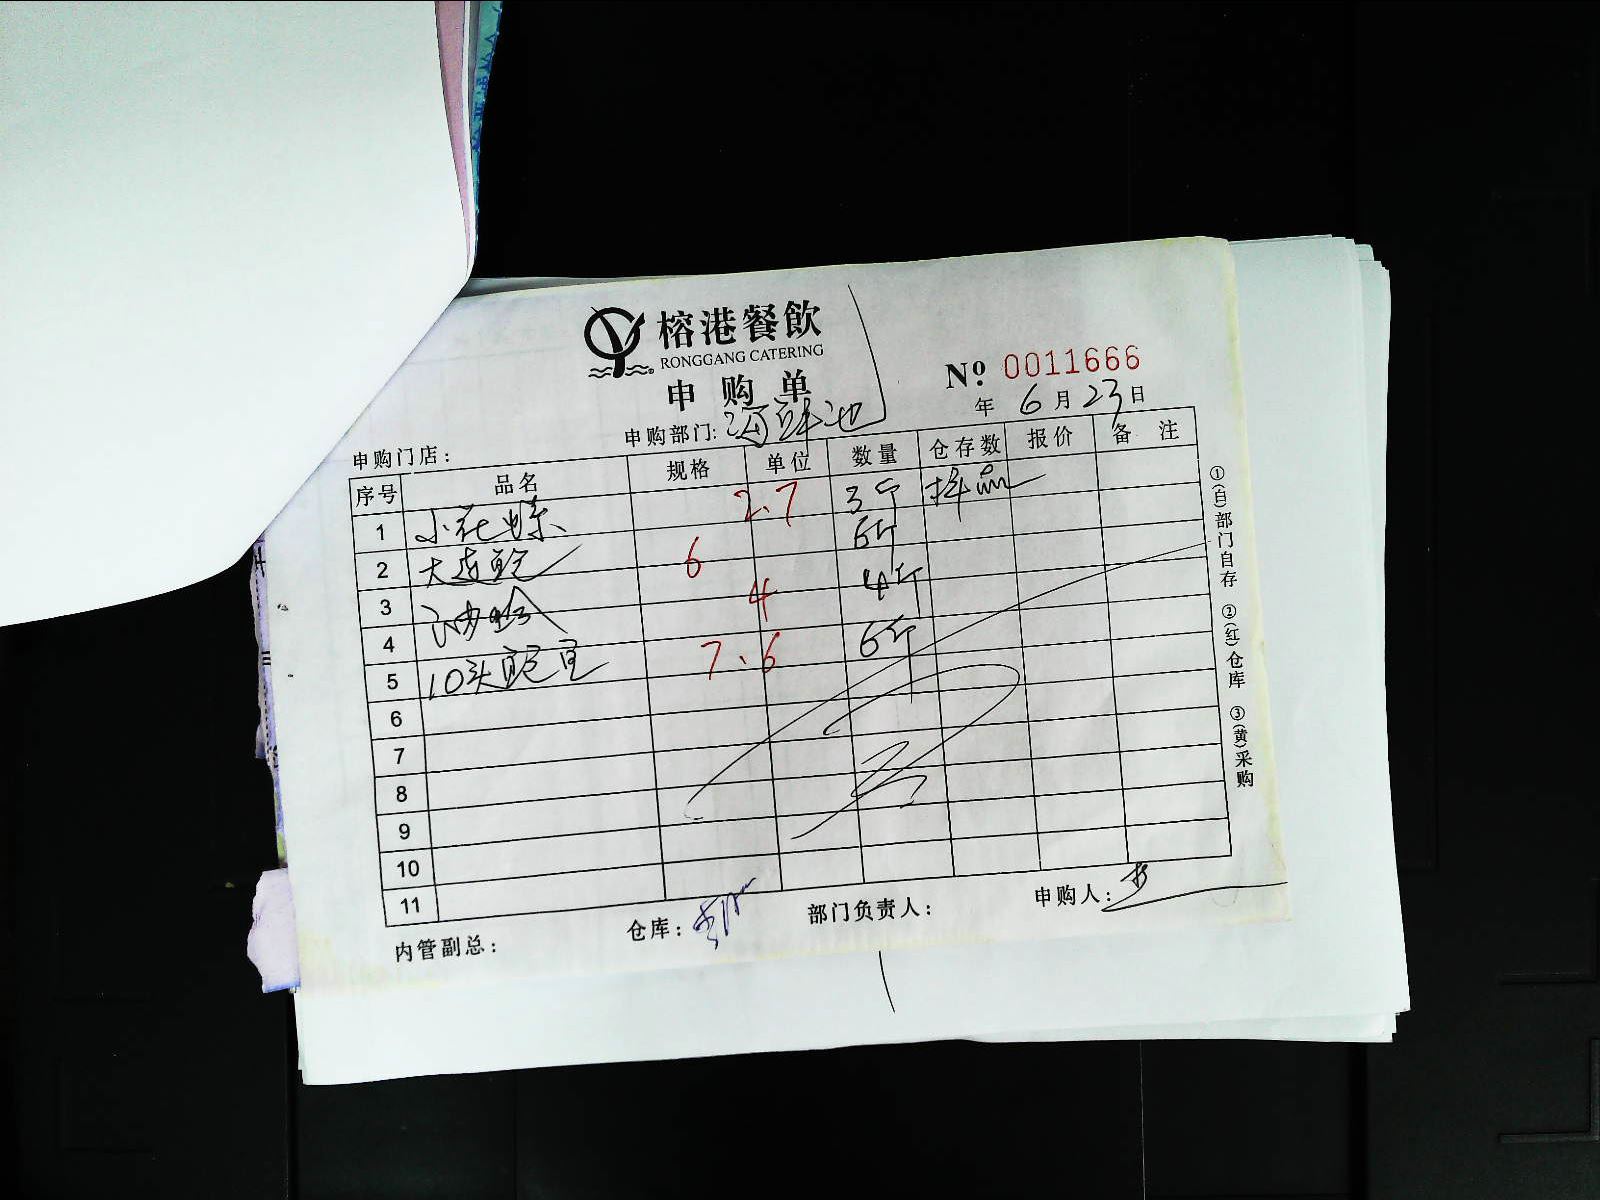 榕港餐飲
RONGGANG CATERING
申购单
№ 0011666
年 6月23日
申购门店： 申购部门：海鲜池
序号 品名 规格 单位 数量 仓存数 报价 备注
1 小花螺 2.7 3斤 样品
2 大连鲍 6 6斤
3 油蛤 4 4斤
4 10头鲍 7.6 6斤
5
6
7
8
9
10
11
内管副总： 仓库： 部门负责人： 申购人：
①(白)部门自存 ②(红)仓库 ③(黄)采购